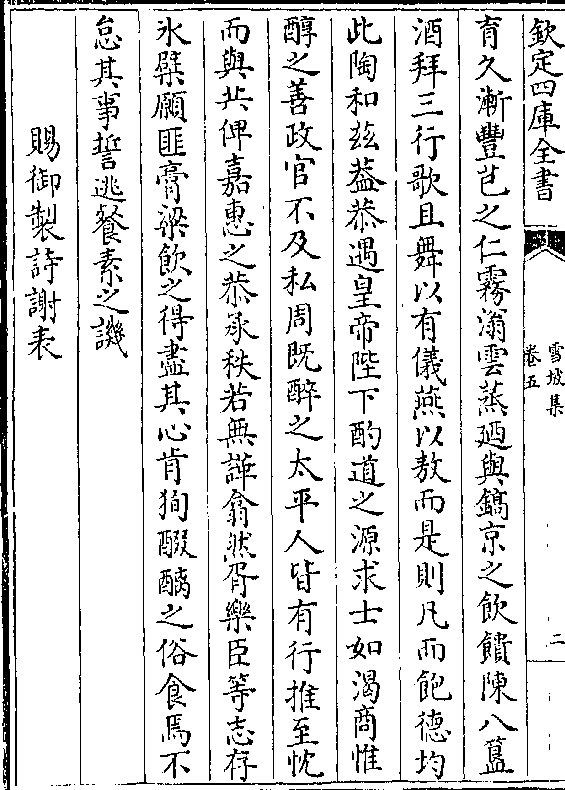 欽定四庫全書
雪坡集
卷五
二
育久漸豐芑之仁霧滃雲蒸廼與鎬京之飲饋陳八簋
酒拜三行歌且舞以有儀燕以敖而是則凡而飽德均
此陶和玆葢恭遇皇帝陛下酌道之源求士如渴商惟
醇之善政官不及私周既醉之太平人皆有行推至忱
而與共俾嘉惠之恭承秩若無譁翕然胥樂臣等志存
氷檗願匪膏粱飲之得盡其心肯狥醊醨之俗食焉不
怠其事誓逃餐素之譏
賜御製詩謝表